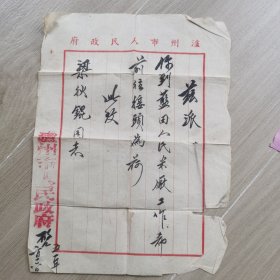 瀘州市人民政府
茲派
你到藍田人民米廠工作，希
前往接頭為荷
此致
梁狄鋭同志
瀘州市人民政府
五一年